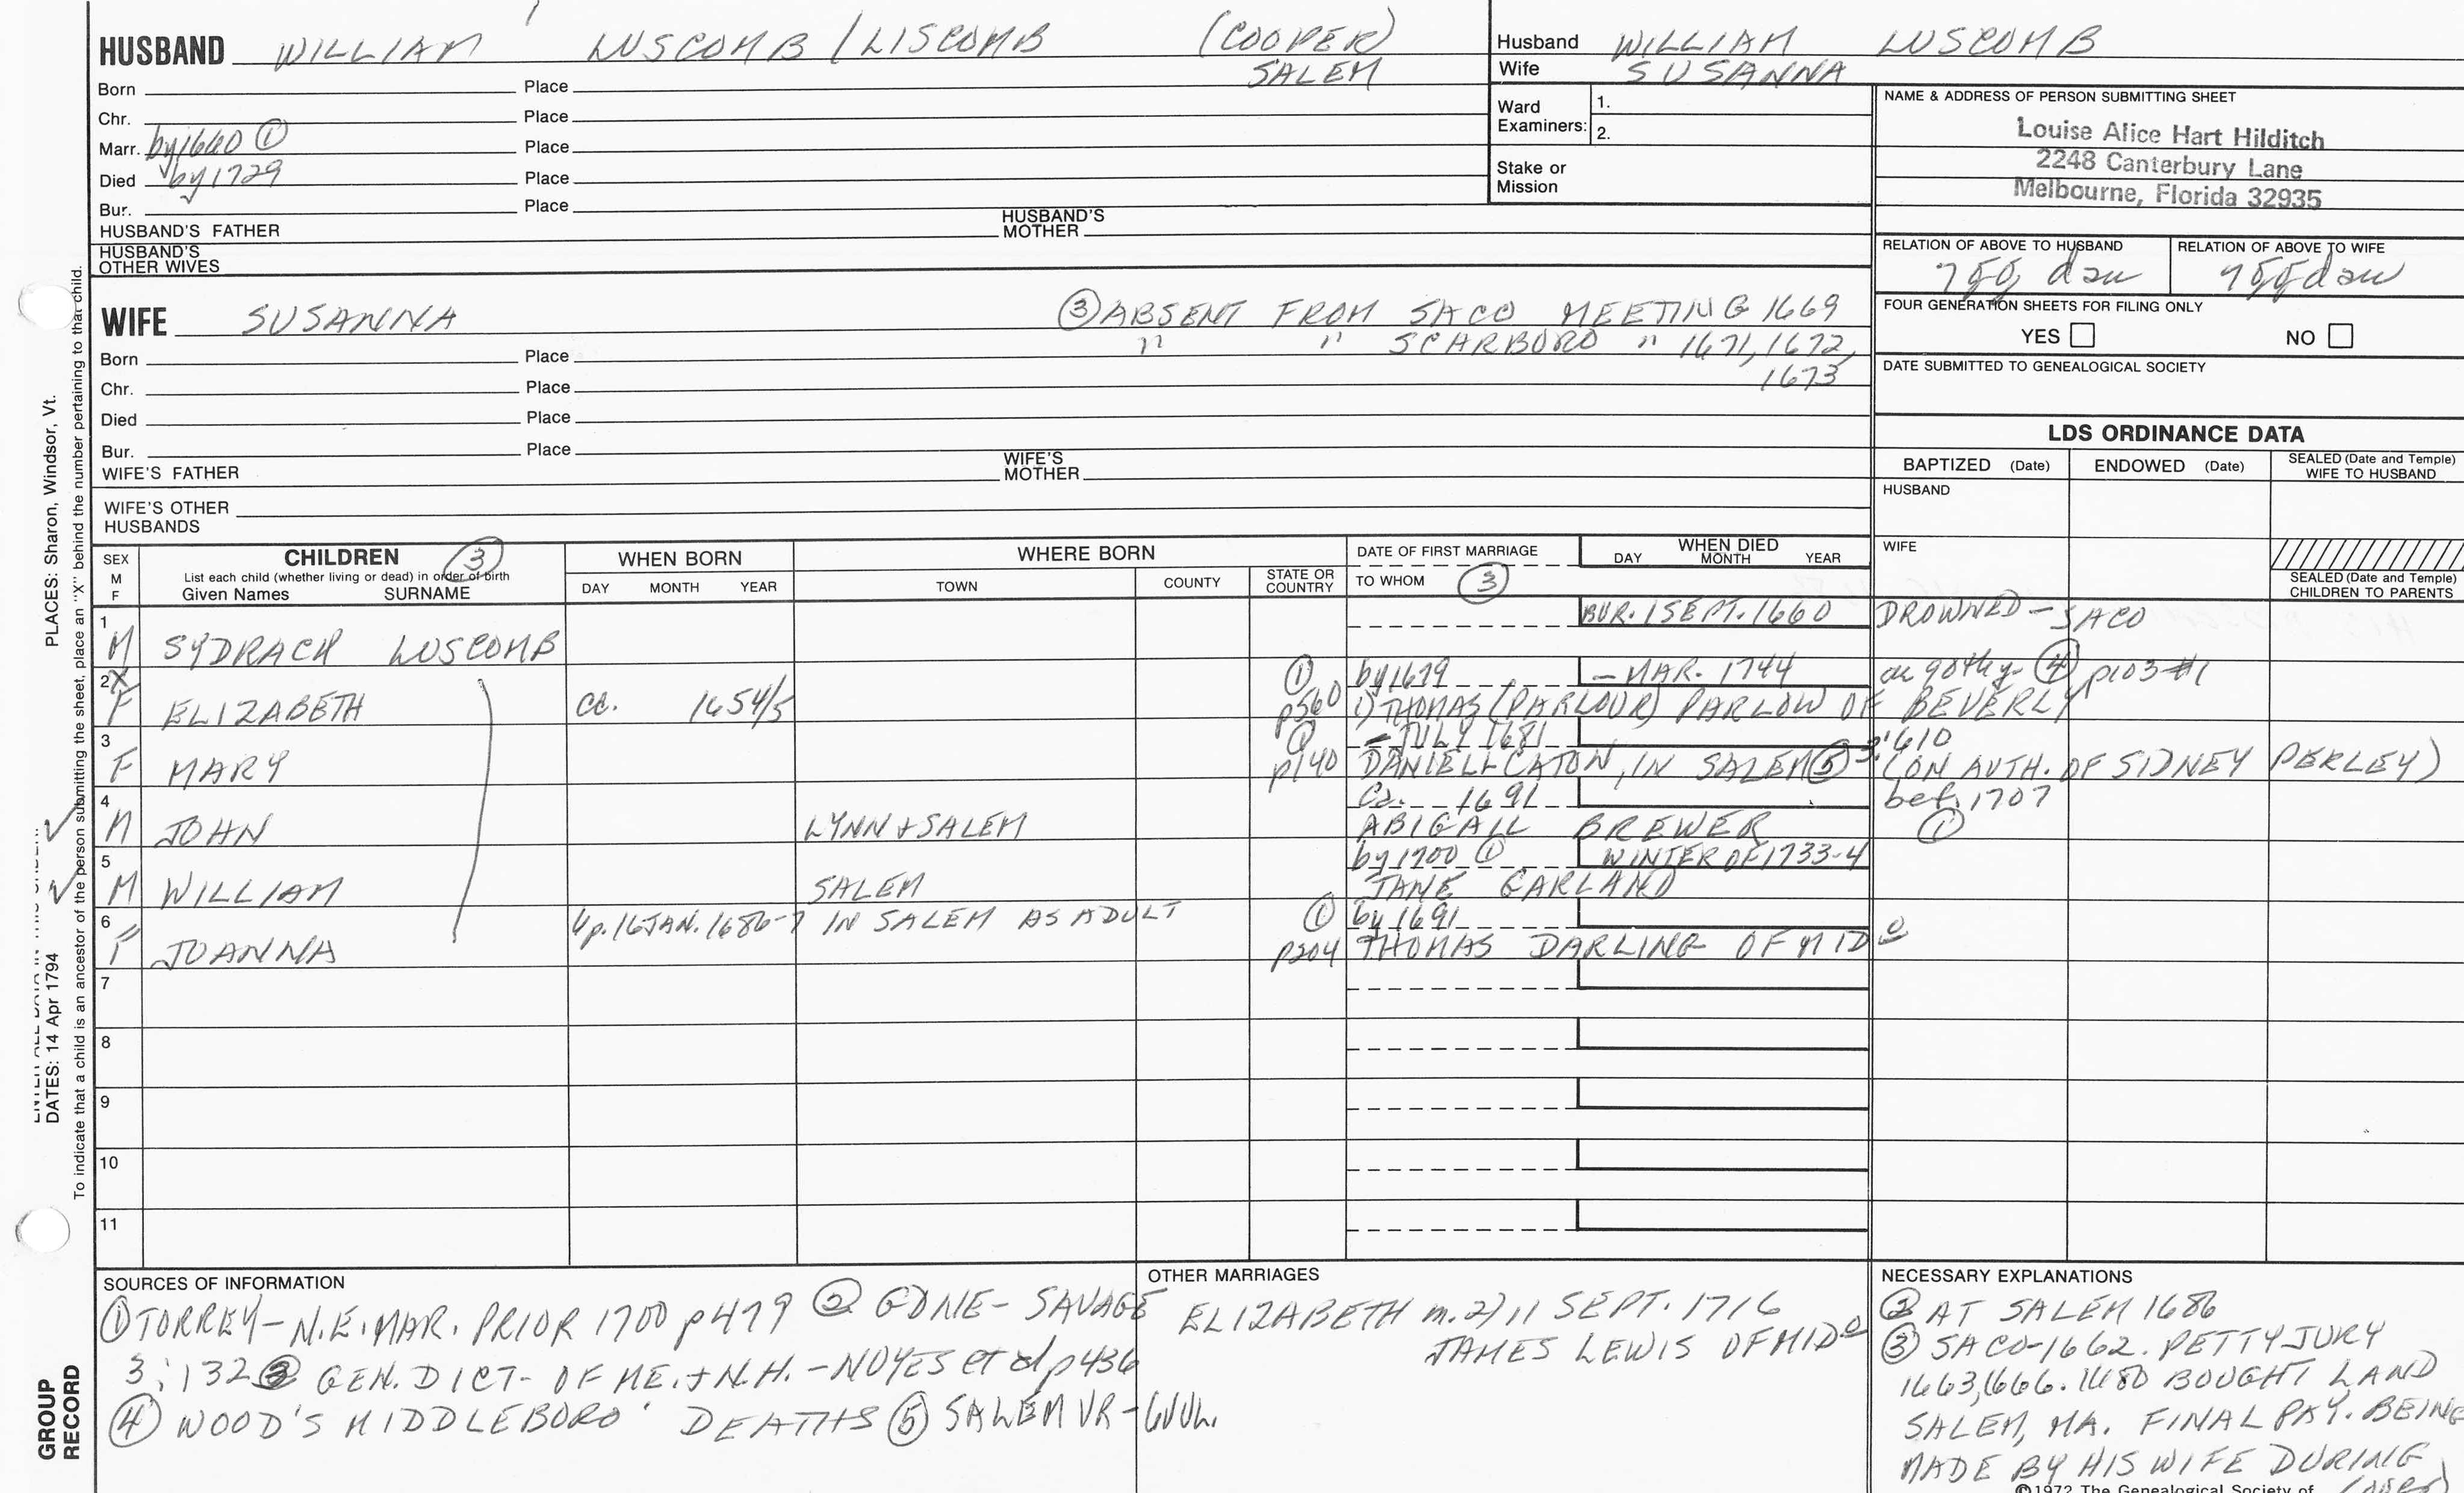 HUSBAND WILLIAM LUSCOMB / LISCOMB (COOPER)
SALEM
Born Place
Chr. Place
Marr. by 1660 ① Place
Died by 1729 Place
Bur. Place
HUSBAND'S FATHER HUSBAND'S MOTHER
HUSBAND'S OTHER WIVES
Husband WILLIAM LUSCOMB
Wife SUSANNA
Ward Examiners: 1.
2.
Stake or Mission
NAME & ADDRESS OF PERSON SUBMITTING SHEET
Louise Alice Hart Hilditch
2248 Canterbury Lane
Melbourne, Florida 32935
RELATION OF ABOVE TO HUSBAND RELATION OF ABOVE TO WIFE
7gg dau 7gg dau
FOUR GENERATION SHEETS FOR FILING ONLY
YES NO
DATE SUBMITTED TO GENEALOGICAL SOCIETY
WIFE SUSANNA ③ ABSENT FROM SACO MEETING 1669
" " SCARBORO " 1671, 1672,
1673
Born Place
Chr. Place
Died Place
Bur. Place
WIFE'S FATHER WIFE'S MOTHER
WIFE'S OTHER HUSBANDS
LDS ORDINANCE DATA
BAPTIZED (Date) ENDOWED (Date) SEALED (Date and Temple) WIFE TO HUSBAND
HUSBAND
WIFE
SEALED (Date and Temple) CHILDREN TO PARENTS
SEX M F
CHILDREN ③
List each child (whether living or dead) in order of birth
Given Names SURNAME
WHEN BORN
DAY MONTH YEAR
WHERE BORN
TOWN COUNTY STATE OR COUNTRY
DATE OF FIRST MARRIAGE
TO WHOM ③
WHEN DIED
DAY MONTH YEAR
1 BUR. 1 SEPT. 1660 DROWNED - SACO
M SYDRACH LUSCOMB
2 X ① by 1679 - MAR. 1744 ae 90th y- ④ p103 #1
F ELIZABETH ca. 1654/5 p560 1) THOMAS (PARLOUR) PARLOW OF BEVERLY
3 ① - JULY 1681 3:610
F MARY p140 DANIELL CATON, IN SALEM ⑤ (ON AUTH. OF SIDNEY PERLEY)
4 ca. 1691 bef. 1707
M JOHN LYNN + SALEM ABIGAIL BREWER ①
5 by 1700 ① WINTER OF 1733-4
M WILLIAM SALEM JANE GARLAND
6 bp. 16 JAN. 1686-7 IN SALEM AS ADULT ① by 1691
F JOANNA p204 THOMAS DARLING OF MIDo
7
8
9
10
11
SOURCES OF INFORMATION
① TORREY - N.E. MAR. PRIOR 1700 p479 ② GDNE - SAVAGE
3:132 ③ GEN. DICT- OF ME. + N.H. - NOYES et al p436
④ WOOD'S MIDDLEBORO' DEATHS ⑤ SALEM VR -
OTHER MARRIAGES
ELIZABETH m. 2) 11 SEPT. 1716
JAMES LEWIS OF MIDo
NECESSARY EXPLANATIONS
② AT SALEM 1686
③ SACO-1662. PETTY JURY
1663, 1666. 1680 BOUGHT LAND
SALEM, MA. FINAL PAY. BEING
MADE BY HIS WIFE DURING
©1972 The Genealogical Society of
PLACES: Sharon, Windsor, Vt.
DATES: 14 Apr 1794
To indicate that a child is an ancestor of the person submitting the sheet, place an "X" behind the number pertaining to that child.
GROUP RECORD